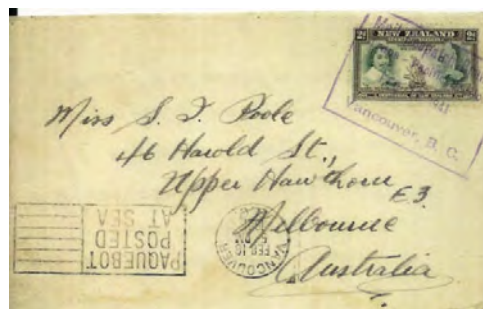 2d NEW ZEALAND 2d
Vancouver, B. C.
Miss S. J. Poole
46 Harold St.,
Upper Hawthorn E3.
Melbourne
Australia
PAQUEBOT
POSTED
AT SEA
VANCOUVER
FEB 10